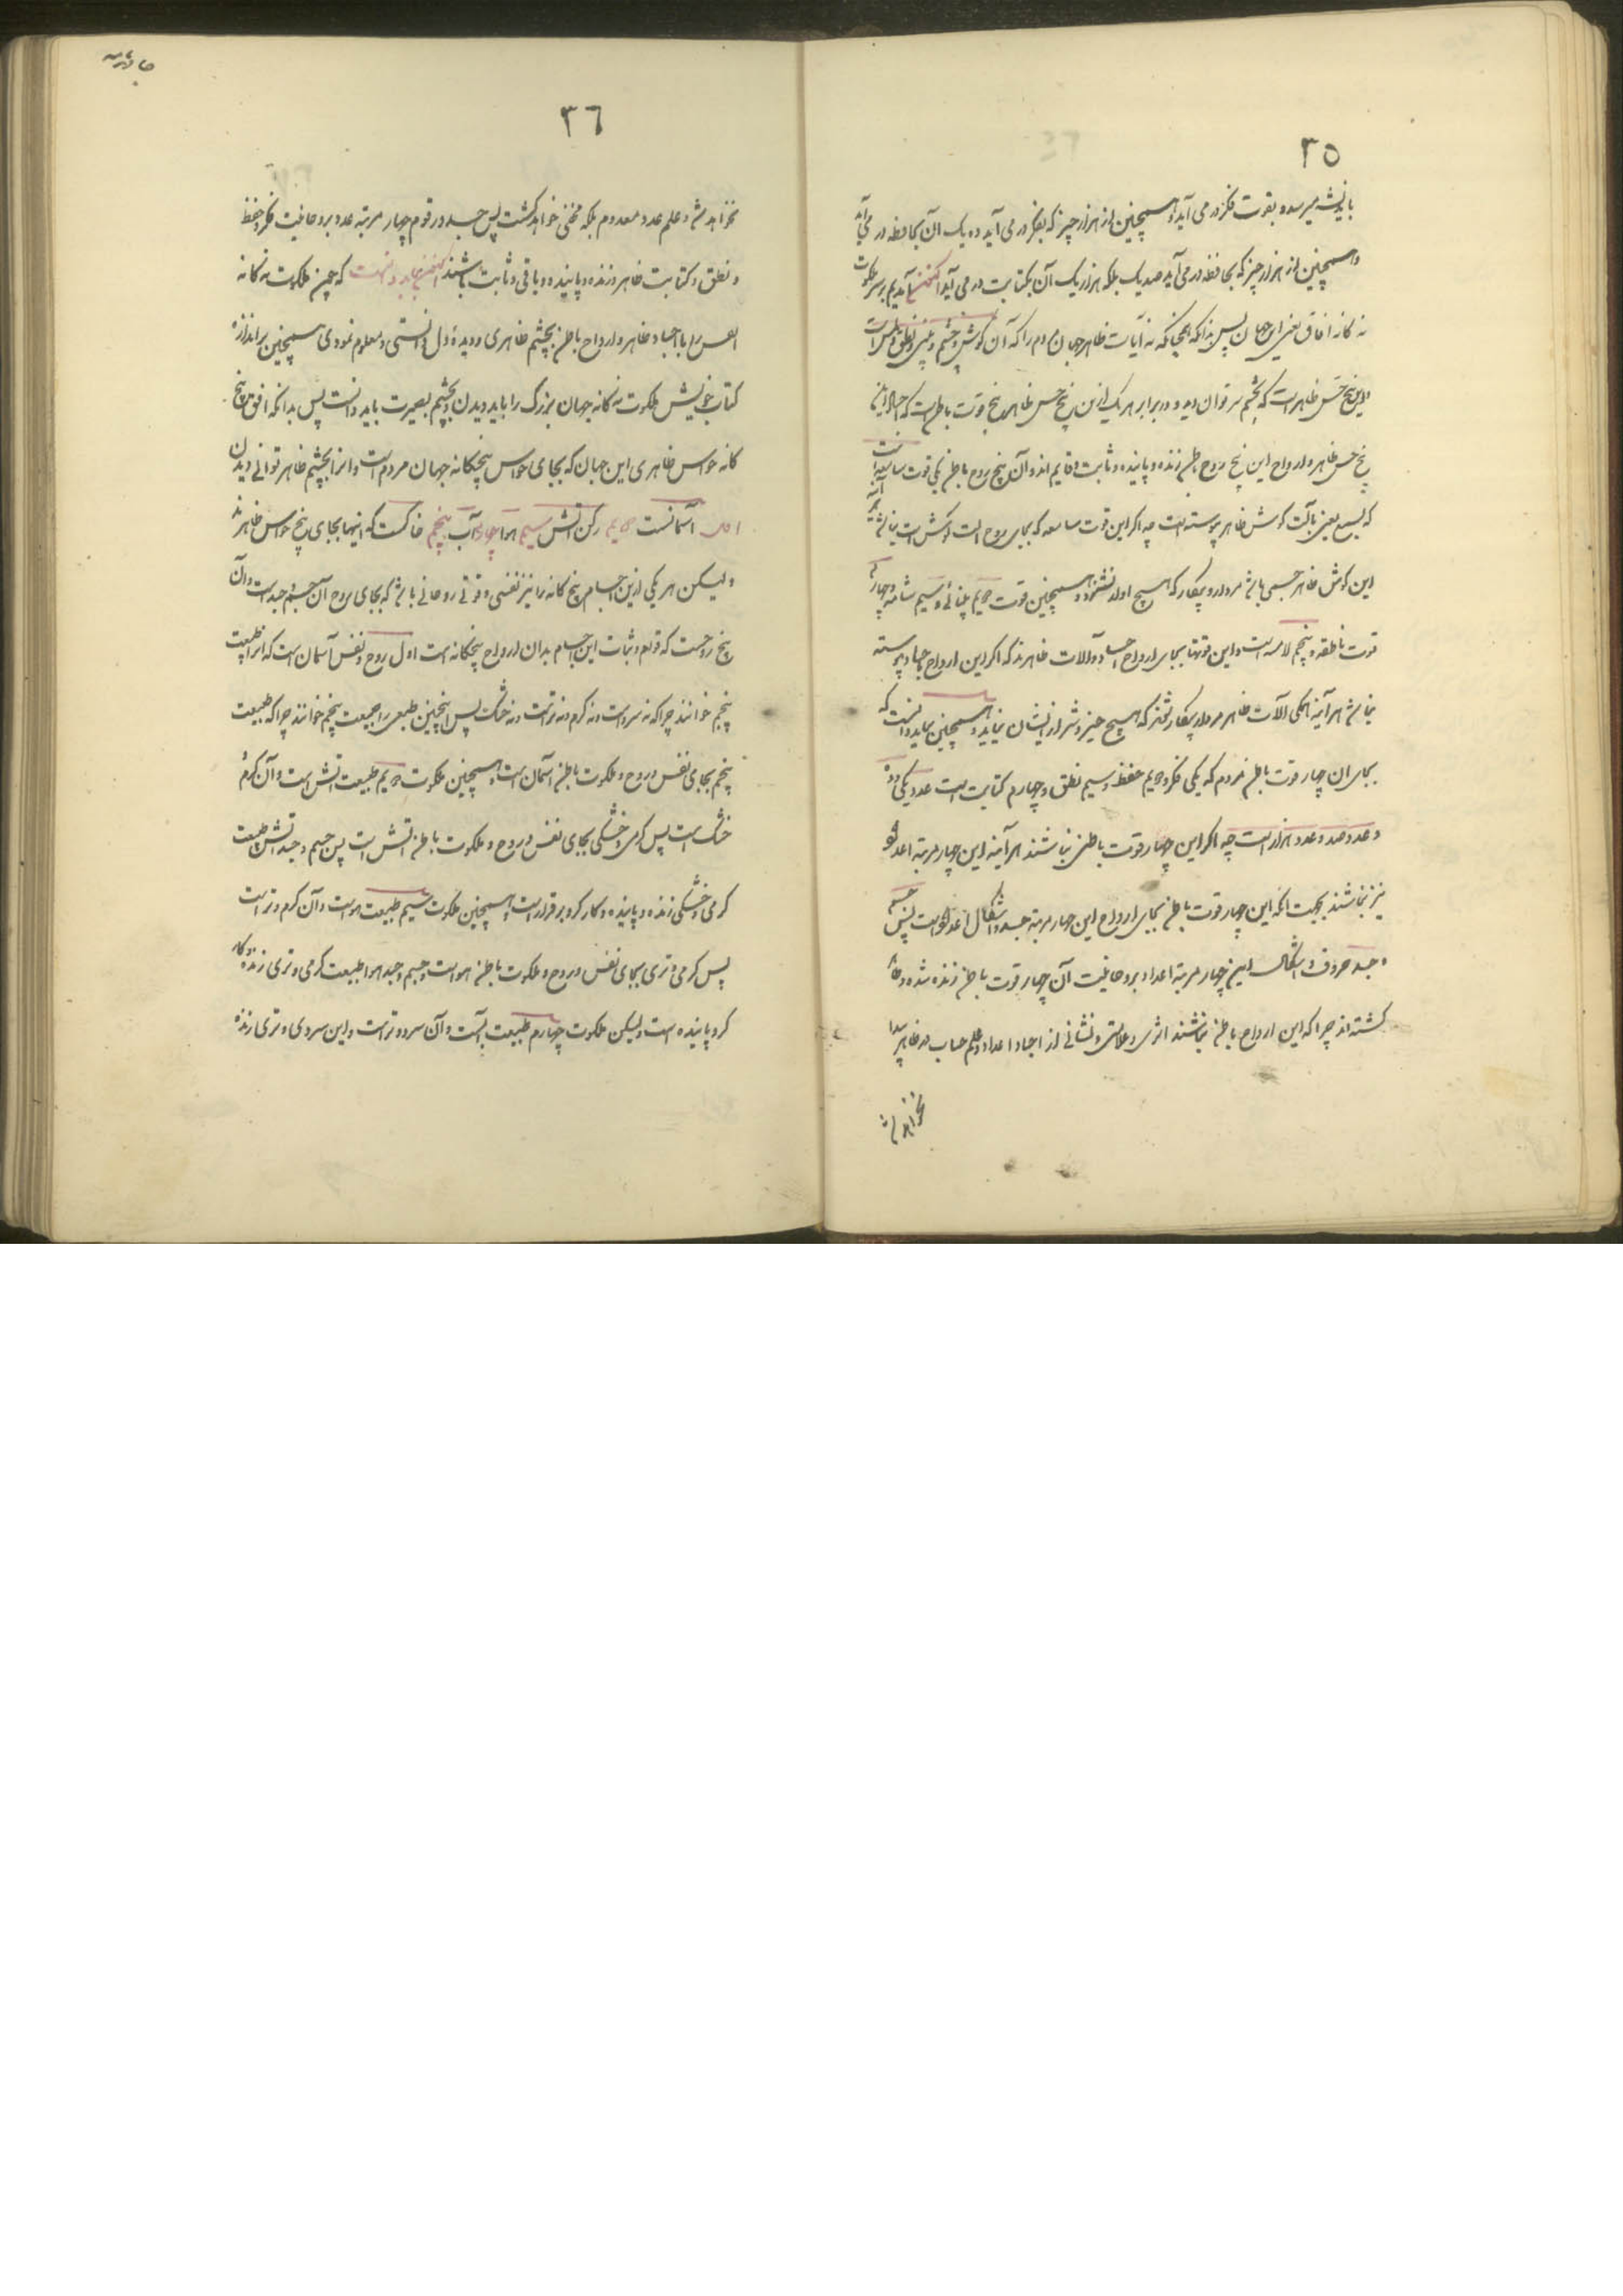 ٣٥
باندیشه میرسد و بقوت فکر در می آید و همچنین از هزار چیز که بفکر در می آید ده یک آن بحافظه در می آید
و همچنین از هزار چیز که بحافظه در می آید صد یک بلکه هزار یک آن بکتابت در می آید اکنون آمدیم بر سر ملکوت
نه کانه افاق یعنی این جهان پس بدانکه همچنانکه نه آیات ظاهر جهان مردم را که آن کوش و چشم و بینی و نطق و لمس است
و این پنج حس ظاهر است که بچشم سر توان دید و در برابر هر یک ازین پنج حس ظاهر پنج قوت باطن است که اجساد این
پنج حس ظاهر و ارواح این پنج روح باطن زنده و پاینده و ثابت و قایم اند و آن پنج روح باطن یکی قوت سامعه است
که بسمع یعنی بآلت کوش ظاهر پیوسته است چه اکر این قوت سامعه که بجای روح الت کوش است نباشد هر آینه
این کوش ظاهر جسمی باشد مردار و بیکار که هیچ اواز نشنود و همچنین قوت دویم بینائی و سیم شامه و چهارم
قوت ناطقه و پنجم لامسه است و این قوتها بجای ارواح اجساد و آلات ظاهرند که اکر این ارواح باجساد پیوسته
نباشد هر آینه همکی آلات ظاهر مردار و بیکار شوند که هیچ خیر و شر از ایشان نیاید و همچنین بباید دانست که
بجای ان چهار قوت باطن مردم که یکی فکر و دویم حفظ و سیم نطق و چهارم کتابت است عدد یکی و ده
و عدد صد و عدد هزار است چه اکر این چهار قوت باطنی نباشند هر آینه این چهار مرتبه اعداد
نیز نباشند بجهت انکه این چهار قوت باطن بجای ارواح این چهار مرتبه جسد و اشکال اعداد است پس جسم
و جسد حروف و اشکال این چهار مرتبه اعداد بروحانیت آن چهار قوت باطن زنده شده و
کشته اند چرا که این ارواح باطن نباشند اثری و علامتی و نشانی از اجساد اعداد و علم حساب در ظاهر پیدا
نخواهد شد
٣٦
نخواهد شد و علم عدد معدوم بلکه مخفی خواهد کشت پس جسد و رقوم چهار مرتبه عدد بروحانیت فکر و حفظ
و نطق و کتابت ظاهر و زنده و پاینده و باقی و ثابت باشند اکنون بباید دانست که چون ملکوت نه کانه
انفس را با اجساد ظاهر و ارواح باطن بچشم ظاهری و دیدهٔ دل دانستی و معلوم نمودی همچنین بر اندازه
کتاب خویش ملکوت نه کانه جهان بزرک را باید دیدن و بچشم بصیرت باید دانست پس بدانکه افق پنج
کانه حواس ظاهری این جهان که بجای حواس پنجکانه جهان مردم است و انرا بچشم ظاهر توانی دیدن
اول آسمانست دویم رکن آتش سیم هوا چهارم آب پنجم خاکست که اینها بجای پنج حواس ظاهرند
ولیکن هر یکی ازین اجسام پنج کانه را نیز نفسی و قوتی روحانی باشد که بجای روح آن جسم و جسد است و آن
پنج روحست که قوام و ثبات این اجسام بدان ارواح پنجکانه است اول روح و نفس آسمان است که انرا طبیعت
پنجم خوانند چرا که نه سرد است و نه کرم و نه تر است و نه خشک پس اینچنین طبعی را طبیعت پنجم خوانند چرا که طبیعت
پنجم بجای نفس و روح و ملکوت باطن آسمان است و همچنین ملکوت دویم طبیعت آتش است و آن کرم و
خشک است پس کرمی و خشکی بجای نفس و روح و ملکوت باطن اتش است پس جسم و جسد آتش بطبیعت
کرمی و خشکی زنده و پاینده و کارکرد و برقرار است و همچنین ملکوت سیم طبیعت هوا است و آن کرم و تر است
پس کرمی و تری بجای نفس و روح و ملکوت باطن هوا است و جسم و جسد هوا بطبیعت کرمی و تری زنده و کار
کرد و پاینده است ولیکن ملکوت چهارم طبیعت آبست و آن سرد و تر است و این سردی و تری زنده